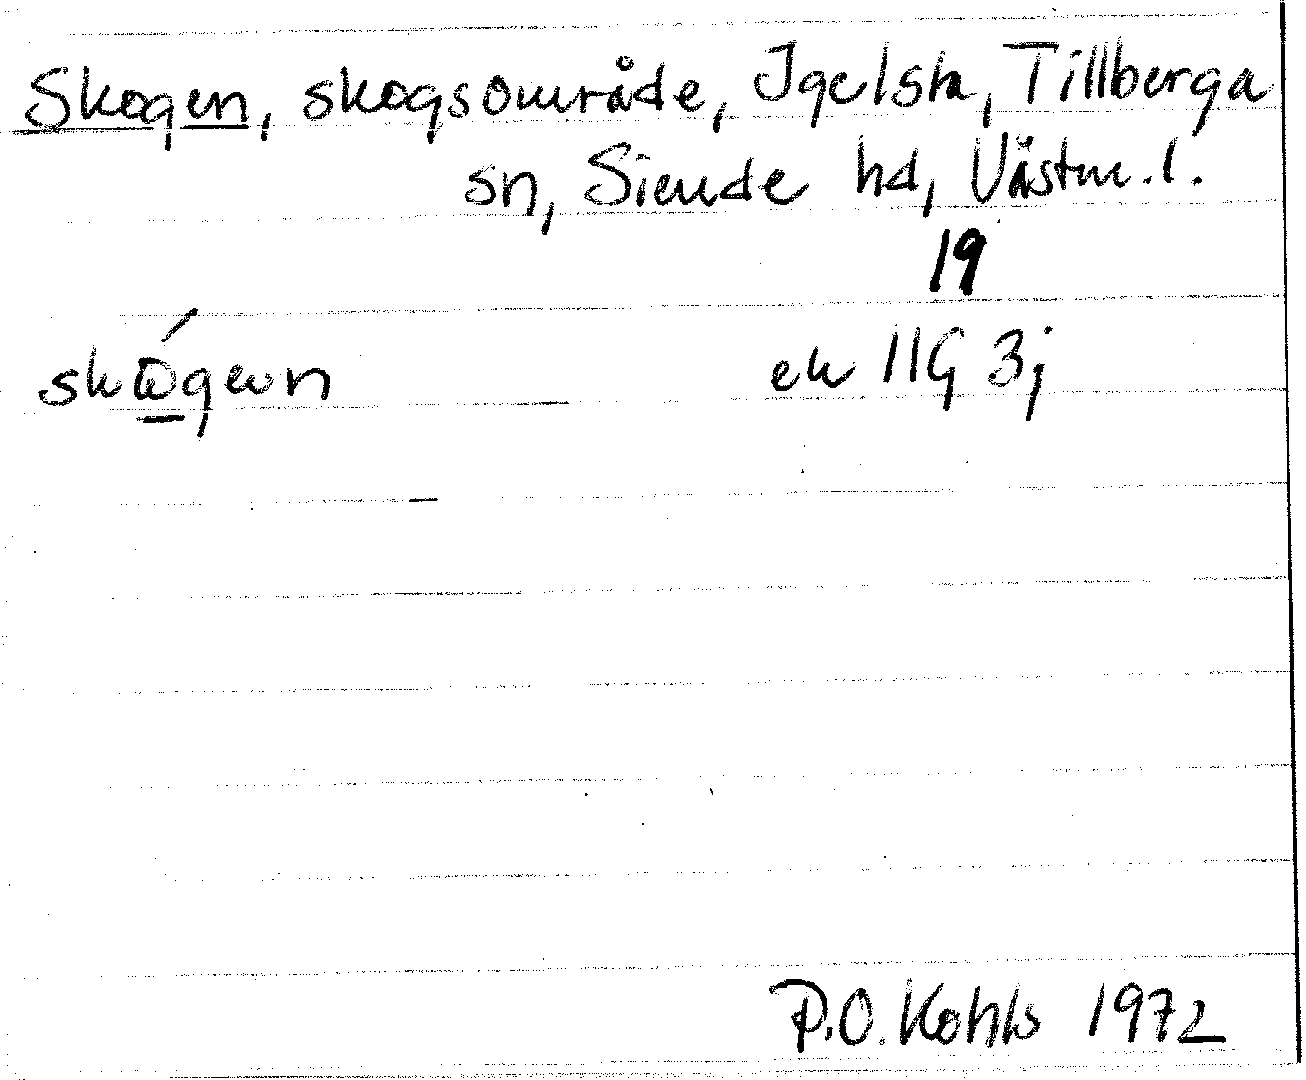 Skogen, skogsområde, Igelsta, Tillberga
sn, Siende hd, Västm.l.
19
ek 11G 3j
P.O. Kohls 1972